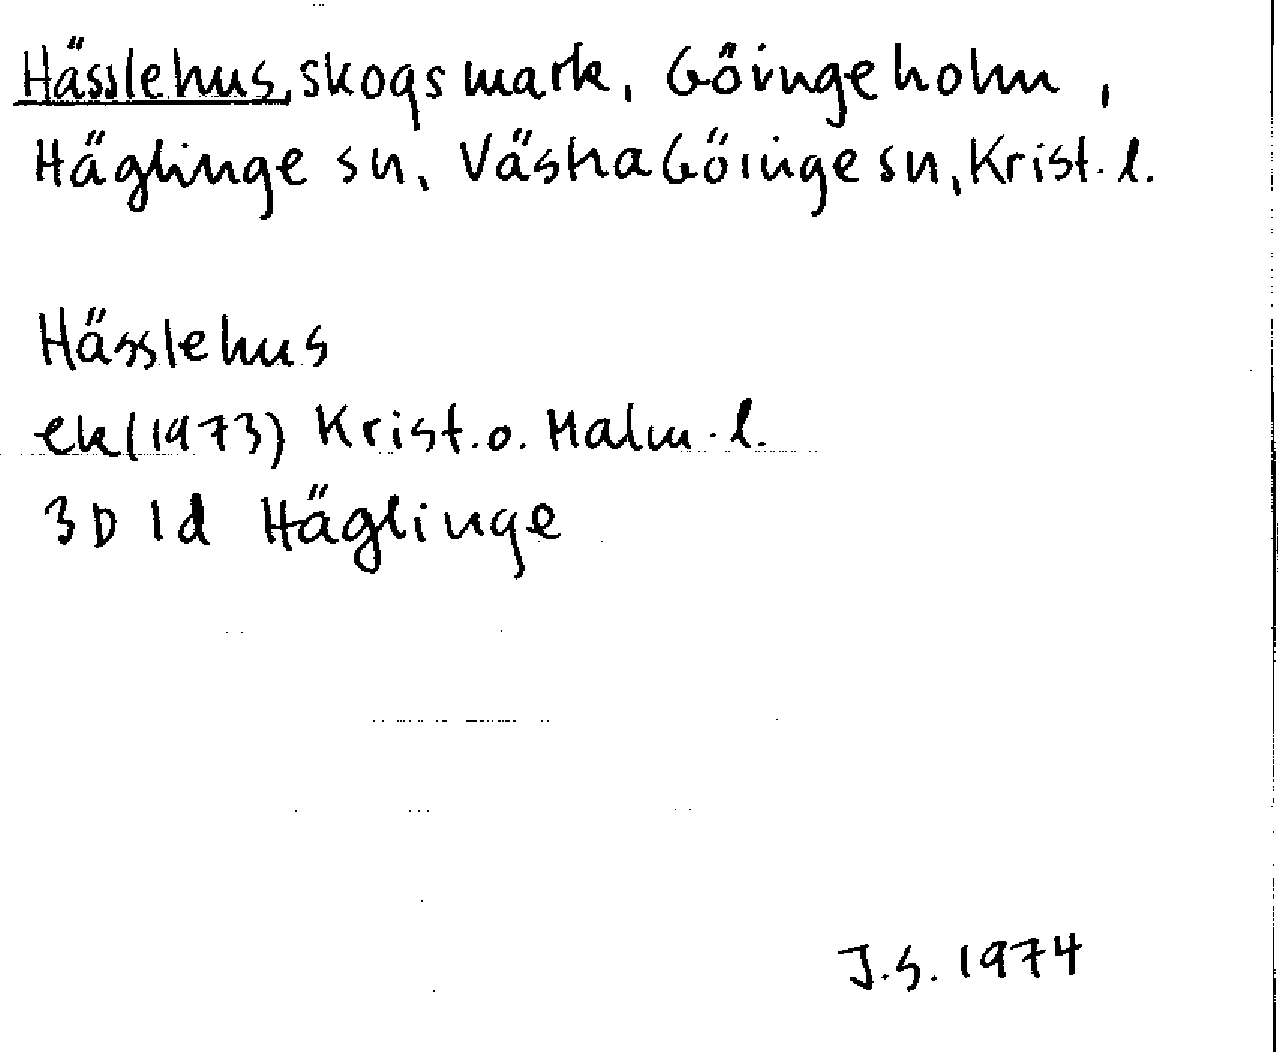 Hässlehus, skogsmark, Göingeholm,
Häglinge sn, Västra Göinge sn, Krist. l.
Hässlehus
ek (1973) Krist. o. Malm. l.
3D 1d Häglinge
J.S. 1974